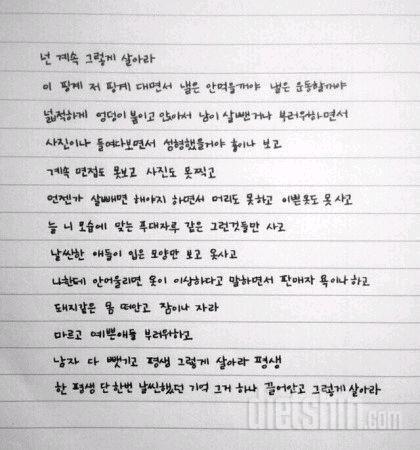 넌 계속 그렇게 살아라
이 핑계 저 핑계 대면서 낼은 안먹을꺼야 낼은 운동할꺼야
넓적하게 엉덩이 붙이고 앉아서 남이 살뺐거나 부러워하면서
사진이나 들여다보면서 성형했을거야 흉이나 보고
계속 면접도 못보고 사진도 못찍고
언젠가 살빼면 해야지 하면서 머리도 못하고 이쁜옷도 못 사고
늘 니 모습에 맞는 푸대자루 같은 그런것들만 사고
날씬한 애들이 입은 모양만 보고 옷사고
나한테 안어울리면 옷이 이상하다고 말하면서 판매자 욕이나하고
돼지같은 몸 떠안고 잠이나 자라
마르고 예쁜애들 부러워하고
남자 다 뺏기고 평생 그렇게 살아라 평생
한 평생 단 한번 날씬했던 기억 그거 하나 끌어안고 그렇게 살아라
dietshin.com